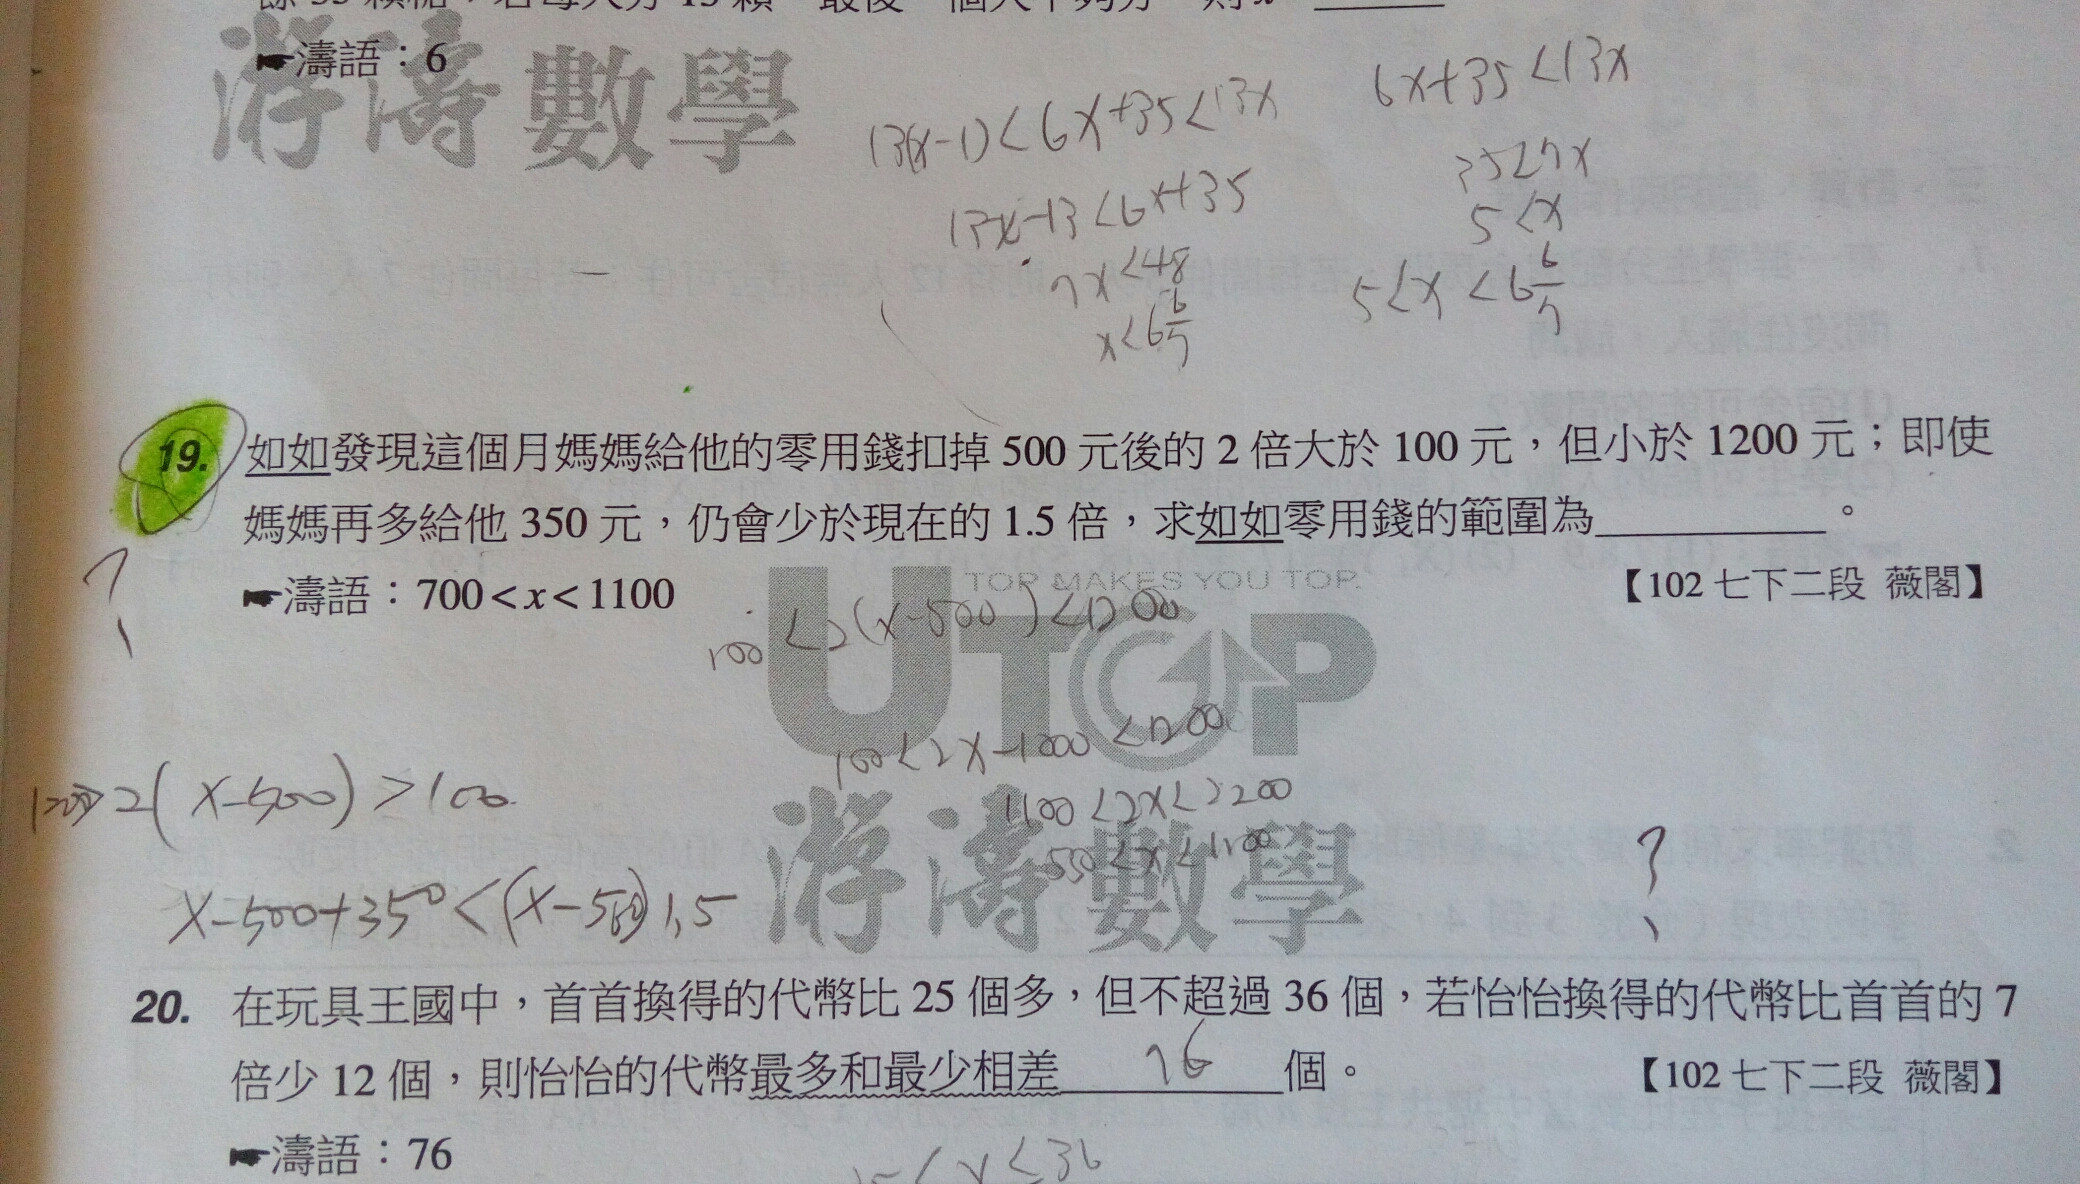 ☛濤語：6
游濤數學
13(x-1)<6x+35<13x
13x-13<6x+35
7x<48
x<6 6/7
6x+35<13x
35<7x
5<x
5<x<6 6/7
19. 如如發現這個月媽媽給他的零用錢扣掉 500 元後的 2 倍大於 100 元，但小於 1200 元；即使
媽媽再多給他 350 元，仍會少於現在的 1.5 倍，求如如零用錢的範圍為________。
?
☛濤語：700<x<1100
【102 七下二段 薇閣】
TOP MAKES YOU TOP.
UTOP
游濤數學
100<2(x-500)<1200
100<2x-1000<1200
1100<2x<2200
550<x<1100
1200>2(x-500)>100
x-500+350<(x-500)1.5
?
20. 在玩具王國中，首首換得的代幣比 25 個多，但不超過 36 個，若怡怡換得的代幣比首首的 7
倍少 12 個，則怡怡的代幣最多和最少相差 76 個。
【102 七下二段 薇閣】
☛濤語：76